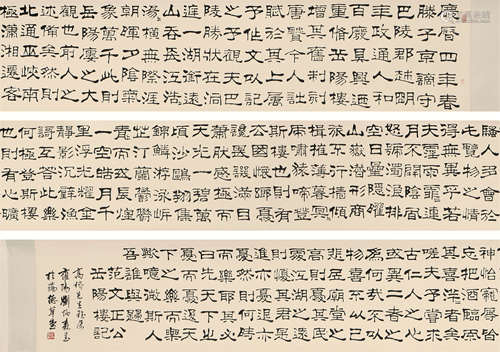 慶曆四年春
滕子京謫守
巴陵郡越明
年政通人和
百廢具興乃
重修岳陽樓
增其舊制刻
唐賢今人詩
賦于其上屬
予作文以記
之予觀夫巴
陵勝狀在洞
庭一湖銜遠
山吞長江浩浩
湯湯橫無涯
際朝暉夕陰
氣象萬千此則
岳陽樓之大
觀也前人之
述備矣然則
北通巫峽南
極瀟湘遷客
騷人多會於
此覽物之情
得無異乎若
夫霪雨霏霏
連月不開陰
風怒號濁浪
排空日星隱耀
山岳潛形商
旅不行檣傾
楫摧薄暮冥
冥虎嘯猿啼
登斯樓也則
有去國懷鄉
憂讒畏譏滿
目蕭然感極
而悲者矣至
若春和景明
波瀾不驚上
下天光一碧萬
頃沙鷗翔集
錦鱗游泳岸
芷汀蘭郁郁
青青而或長煙
一空皓月千
里浮光耀金
靜影沉璧漁
歌互答此樂
何極登斯樓
也則有心曠
神怡寵辱皆
忘把酒臨風
其喜洋洋者
矣嗟夫予嘗
求古仁人之
心或異二者
之為何哉不以
物喜不以己
悲居廟堂之
高則憂其民
處江湖之遠
則憂其君是
進亦憂退亦
憂然則何時
而樂耶其必
曰先天下之
憂而憂後天
下之樂而樂
歟噫微斯人
吾誰與歸
范文正公
岳陽樓記